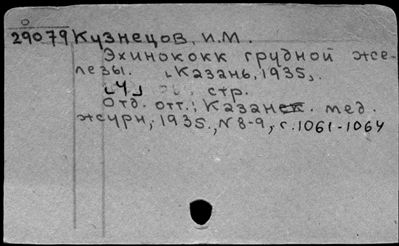 29079 Кузнецов, И.М.
Эхинококк грудной же-
лезы. [Казань, 1935],
[4] стр.
Отд. отт.: Казанск. мед.
журн., 1935., N 8-9, с. 1061-1064